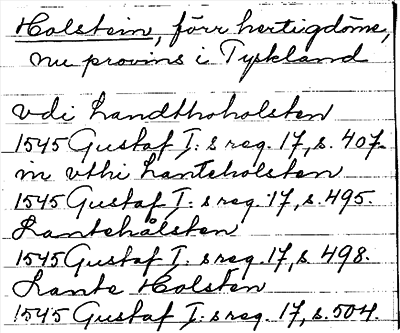 Holstein, förr hertigdöme,
nu provins i Tyskland
vdi Landthoholsten
1545 Gustaf I:s reg. 17, s. 407.
in vthi Lanteholsten
1545 Gustaf I:s reg. 17, s. 495.
Lantehålsten
1545 Gustaf I:s reg. 17, s. 498.
Lante Holsten
1545 Gustaf I:s reg. 17, s. 504.